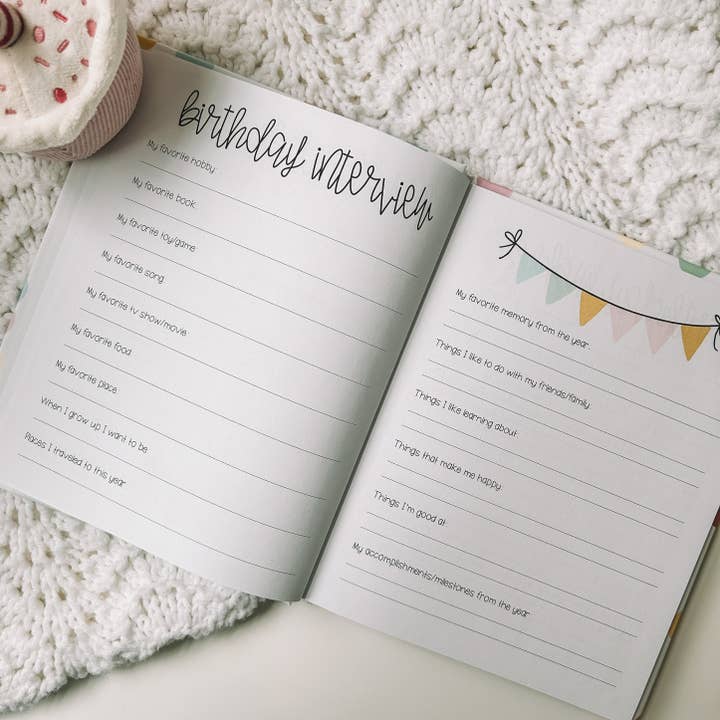 birthday interview
My favorite hobby:
My favorite book:
My favorite toy/game:
My favorite song:
My favorite tv show/movie:
My favorite food:
My favorite place:
When I grow up I want to be:
Places I traveled to this year:
My favorite memory from the year:
Things I like to do with my friends/family:
Things I like learning about:
Things that make me happy:
Things I'm good at:
My accomplishments/milestones from the year: